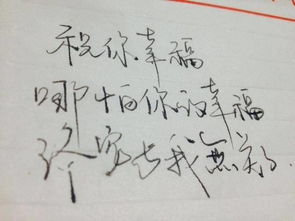 祝你幸福
哪怕你的幸福
与我無关